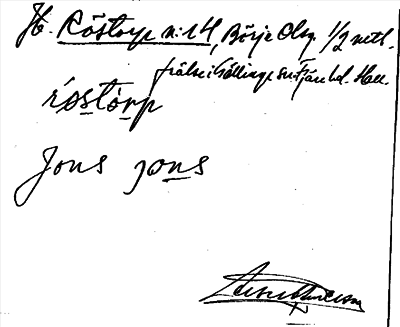 Jf. Röstorp n:14, Börje Olsg 1/2 mtl.
frälse i Gällinge sn Fjäre hd. Hall.
röstòrp
Jons jons